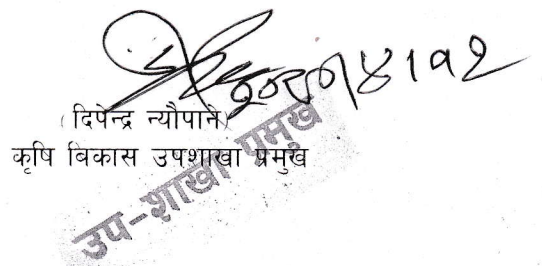 (दिपेन्द्र न्यौपाने)
कृषि बिकास उपशाखा प्रमुख
उप-शाखा प्रमुख